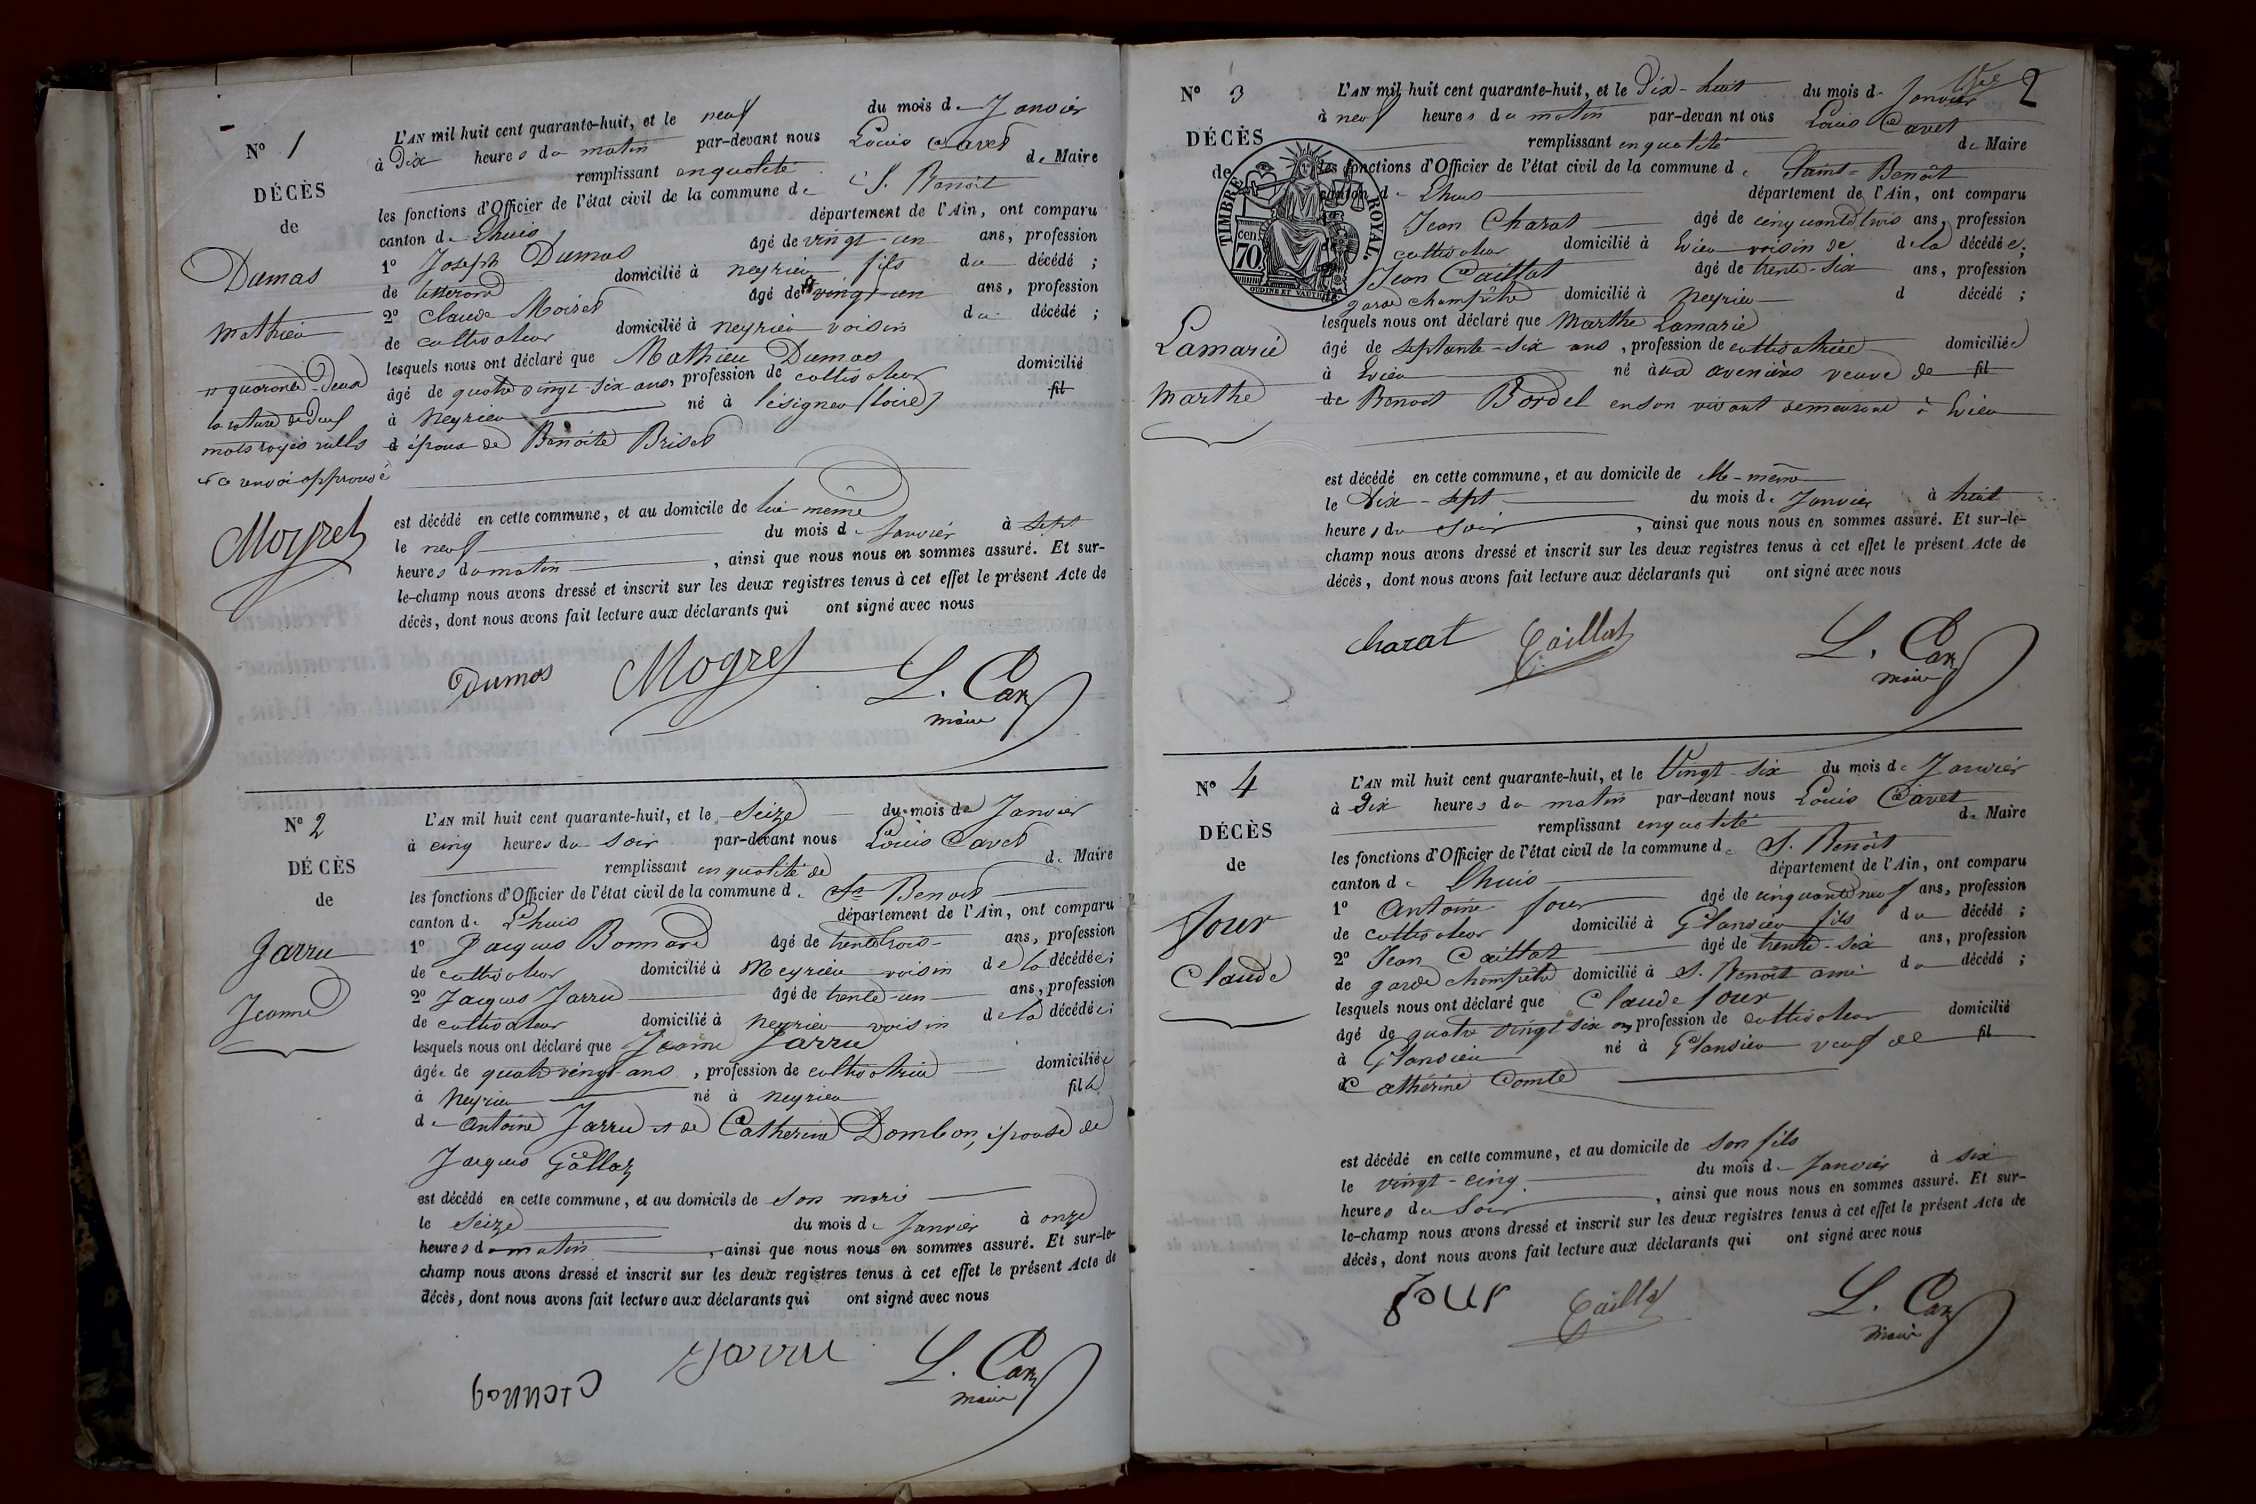 N° 1
DÉCÈS
de
Dumas
Mathieu
quarante-deux
la rature de deux
mots rayés nulls
et ce renvoi approuvé
Mogret
L'AN mil huit cent quarante-huit, et le neuf du mois de Janvier
à Dix heures du matin par-devant nous Louis Cavet
remplissant en qualité de Maire
les fonctions d'Officier de l'état civil de la commune de S. Benoit
canton de Lhuis département de l'Ain, ont comparu
1° Joseph Dumas âgé de vingt-un ans, profession
de domicilié à Neyrieu fils du décédé ;
2° Claude âgé de vingt-un ans, profession
de cultivateur domicilié à Neyrieu voisin du décédé ;
lesquels nous ont déclaré que Mathieu Dumas
âgé de quatre vingt-six ans, profession de cultivateur domicilié
à Neyrieu né à Lésigneu (Loire) fil
d époux de Benoite Briset
est décédé en cette commune, et au domicile de lui-même
le neuf du mois de Janvier à sept
heures du matin, ainsi que nous nous en sommes assuré. Et sur-
le-champ nous avons dressé et inscrit sur les deux registres tenus à cet effet le présent Acte de
décès, dont nous avons fait lecture aux déclarants qui ont signé avec nous
Dumas Mogret L. Cavet
maire
N° 2
DÉCÈS
de
Jarru
Jeanne
L'AN mil huit cent quarante-huit, et le Seize du mois de Janvier
à cinq heures du soir par-devant nous Louis Cavet
remplissant en qualité de de Maire
les fonctions d'Officier de l'état civil de la commune d. St Benoit
canton de Lhuis département de l'Ain, ont comparu
1° Jacques Bonnard âgé de trente trois ans, profession
de cultivateur domicilié à Meyrieu voisin de la décédée ;
2° Jacques Jarru âgé de trente-un ans, profession
de cultivateur domicilié à Neyrieu voisin de la décédée ;
lesquels nous ont déclaré que Jeanne Jarru
âgée de quatre vingt ans, profession de cultivatrice domiciliée
à Neyrieu né à Neyrieu fille
de Antoine Jarru et de Catherine Dombon, épouse de
Jacques Gallaz
est décédé en cette commune, et au domicile de son mari
le Seize du mois de Janvier à onze
heures du matin, ainsi que nous nous en sommes assuré. Et sur-le-
champ nous avons dressé et inscrit sur les deux registres tenus à cet effet le présent Acte de
décès, dont nous avons fait lecture aux déclarants qui ont signé avec nous
Jarru L. Cavet
maire
2
N° 3
DÉCÈS
de
Lamarie
Marthe
TIMBRE ROYAL.
70 cen.
OUDINE ET VAUTHIER
L'AN mil huit cent quarante-huit, et le Dix-huit du mois de Janvier
à neuf heures du matin par-devan nt ous Louis Cavet
remplissant en qualité de Maire
les fonctions d'Officier de l'état civil de la commune de Saint-Benoit
canton de Lhuis département de l'Ain, ont comparu
Jean Charat âgé de cinquante trois ans, profession
cultivateur domicilié à Evieu voisin de de la décédée ;
Jean Caillat âgé de trente-six ans, profession
garde champêtre domicilié à Neyrieu d décédé ;
lesquels nous ont déclaré que Marthe Lamarie
âgé de septante-six ans, profession de cultivatrice domiciliée
à Evieu né aux avenières veuve de fil
de Benoit Bordel en son vivant demeurant à Evieu
est décédé en cette commune, et au domicile de elle-même
le Dix-sept du mois de Janvier à huit
heures du soir, ainsi que nous nous en sommes assuré. Et sur-le-
champ nous avons dressé et inscrit sur les deux registres tenus à cet effet le présent Acte de
décès, dont nous avons fait lecture aux déclarants qui ont signé avec nous
Charat Caillat L. Cavet
maire
N° 4
DÉCÈS
de
Jour
Claude
L'AN mil huit cent quarante-huit, et le Vingt-six du mois de Janvier
à Dix heures du matin par-devant nous Louis Cavet
remplissant en qualité de Maire
les fonctions d'Officier de l'état civil de la commune de S. Benoit
canton de Lhuis département de l'Ain, ont comparu
1° Antoine Jour âgé de cinquante neuf ans, profession
de cultivateur domicilié à Glandieu fils du décédé ;
2° Jean Caillat âgé de trente-six ans, profession
de garde champêtre domicilié à S. Benoit ami du décédé ;
lesquels nous ont déclaré que Claude Jour
âgé de quatre vingt six ans profession de cultivateur domicilié
à Glandieu né à Glandieu veuf de fil
de Cathérine Comte
est décédé en cette commune, et au domicile de son fils
le vingt-cinq du mois de Janvier à six
heures du Soir, ainsi que nous nous en sommes assuré. Et sur-
le-champ nous avons dressé et inscrit sur les deux registres tenus à cet effet le présent Acte de
décès, dont nous avons fait lecture aux déclarants qui ont signé avec nous
Jour Caillat L. Cavet
maire